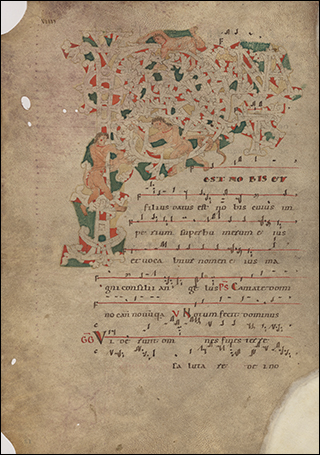 EST NO BIS ET
filius datus est no bis cuius im
pe rium super hu merum e ius
et voca bitur nomen e ius ma
gni consilii an ge lus PS Cantate domi
no can
V N tum fecit dominus
V i de runt om nes fines terre
sa luta re de i no